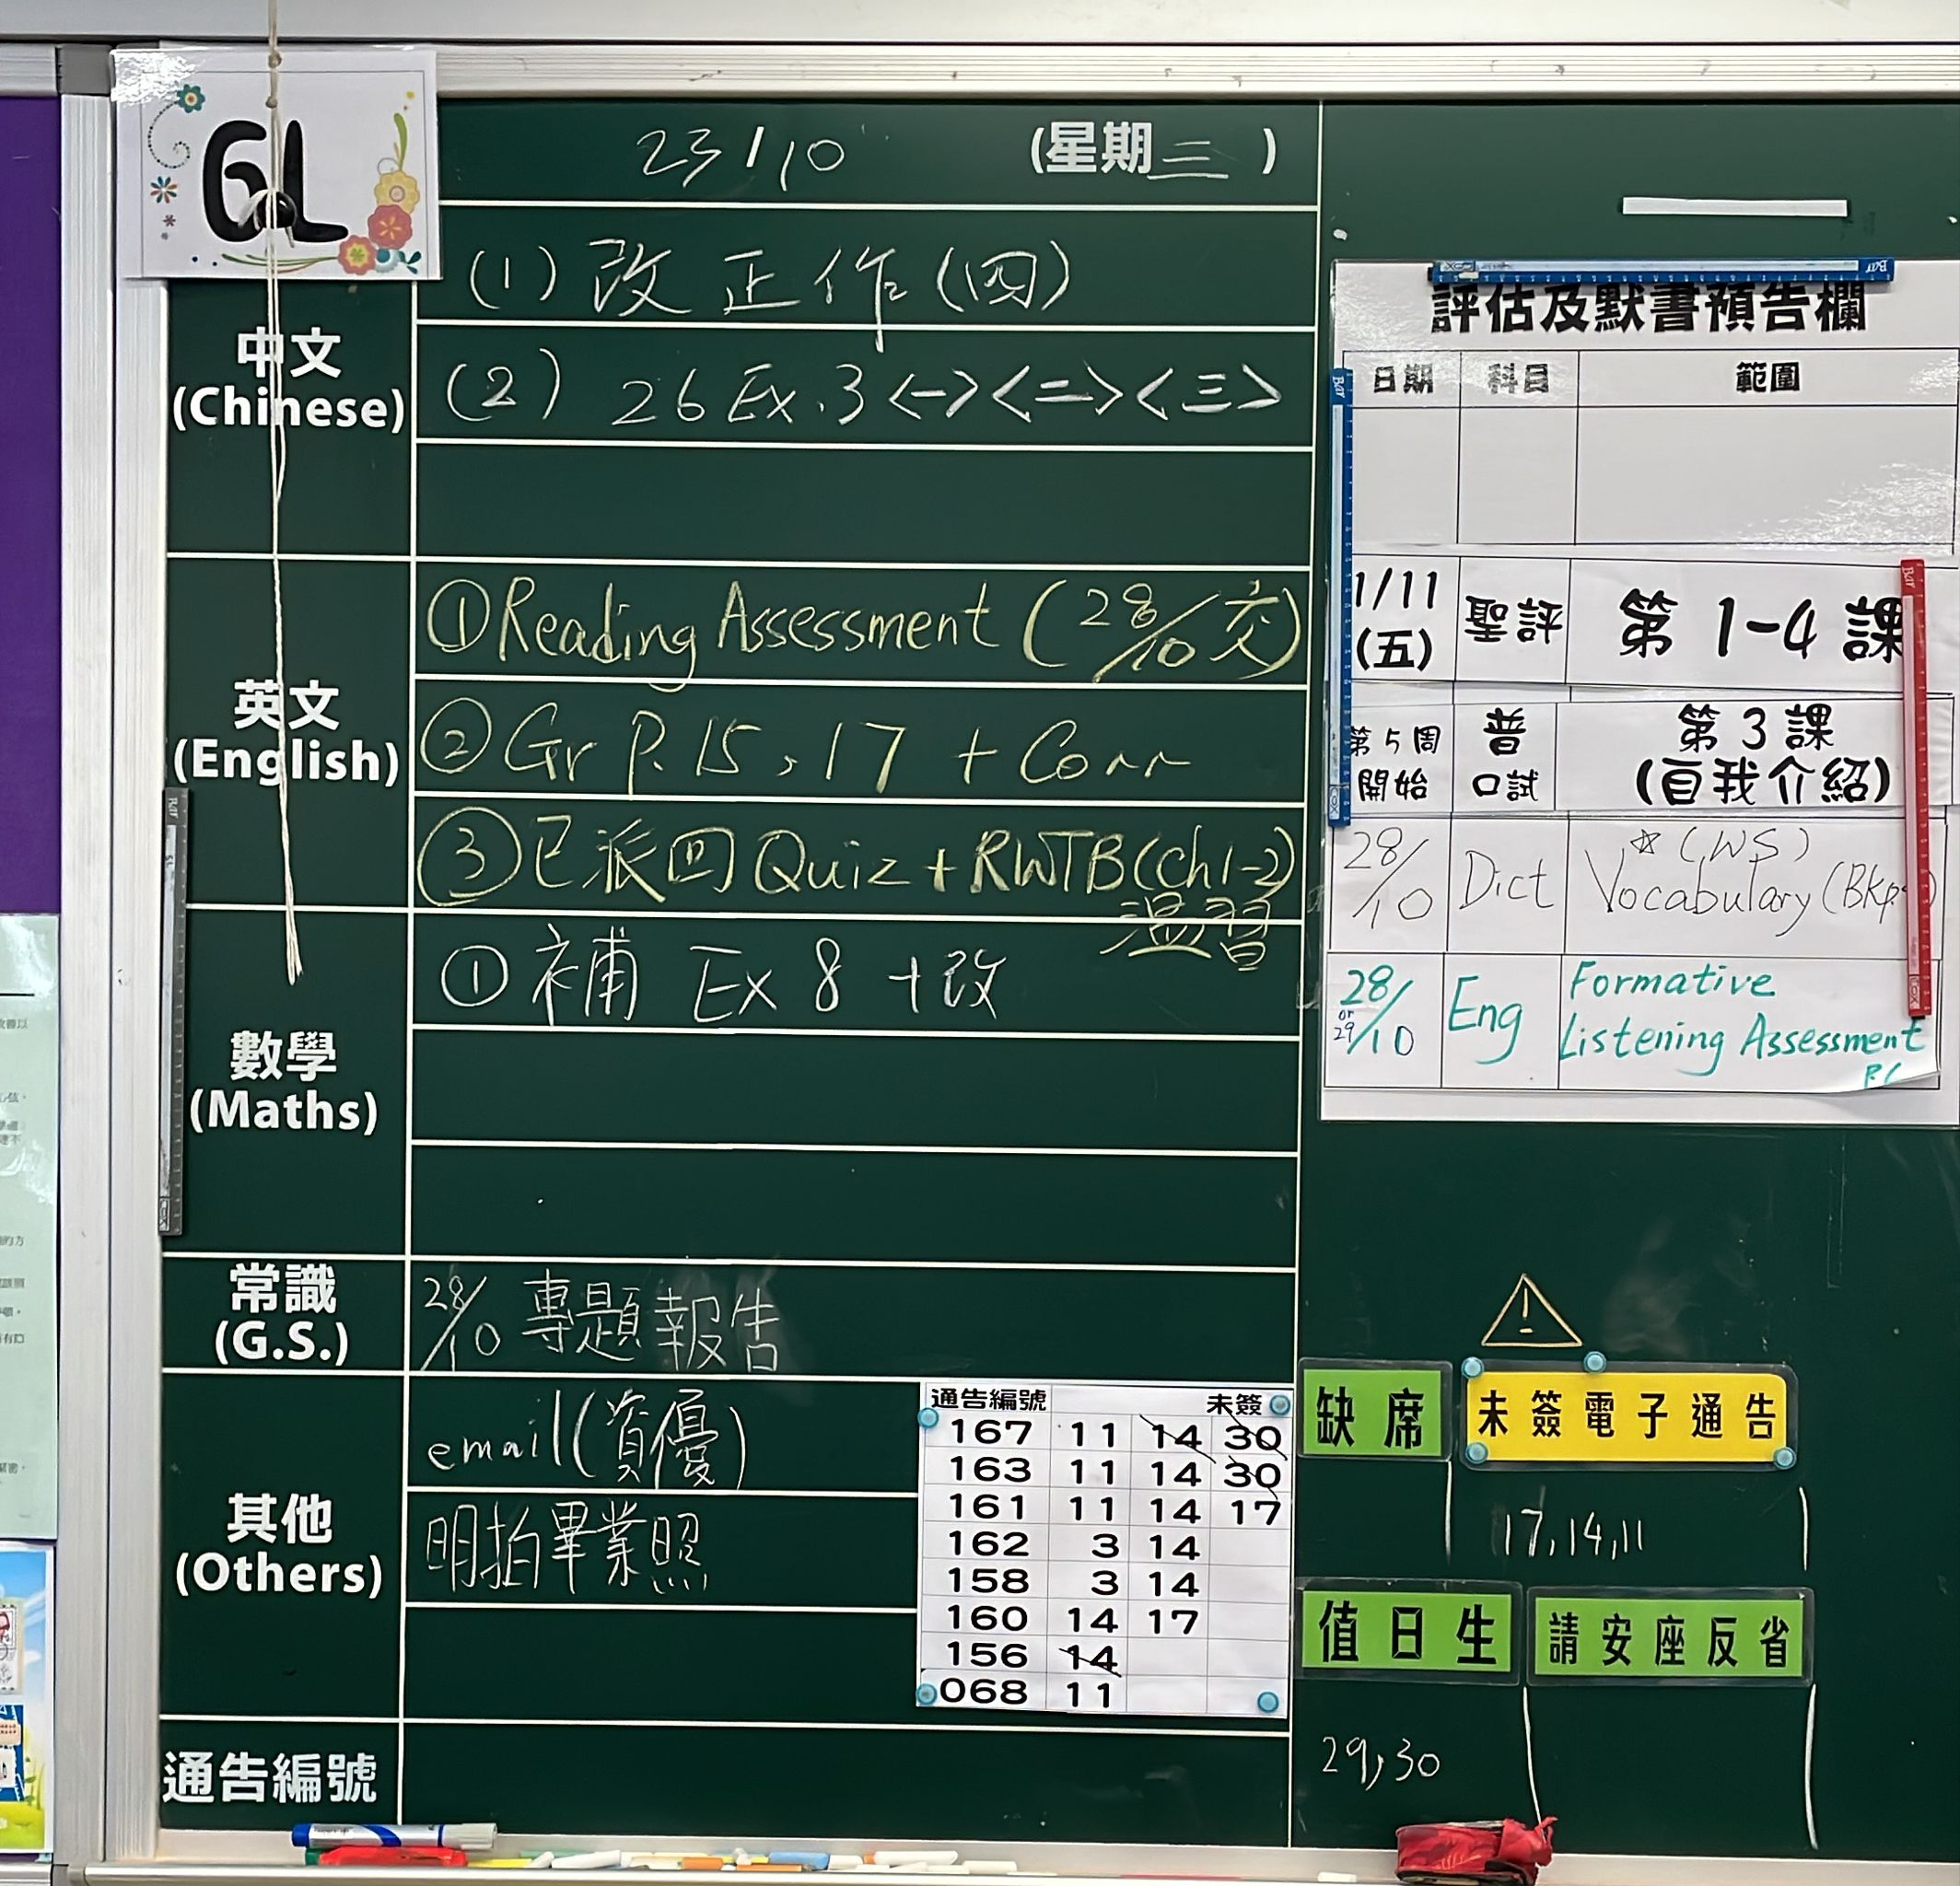 6L
23/10 (星期三)
中文
(Chinese)
(1) 改正作(四)
(2) 26 Ex.3 <一><二><三>
英文
(English)
①Reading Assessment (28/10交)
②Gr P.15,17 + Corr
③已派回Quiz+RWTB(Ch1-2)
溫習
數學
(Maths)
①補 Ex 8 +改
常識
(G.S.)
28/10 專題報告
其他
(Others)
email(資優)
明拍畢業照
通告編號 未簽
167 11 14 30
163 11 14 30
161 11 14 17
162 3 14
158 3 14
160 14 17
156 14
068 11
通告編號
評估及默書預告欄
日期 科目 範圍
1/11
(五) 聖評 第 1-4 課
第5周
開始 普
口試 第3課
(自我介紹)
28/10 Dict ☆(WS)
Vocabulary (BKp
28/
or
29/10 Eng Formative
Listening Assessment
缺席 未簽電子通告
17,14,11
值日生 請安座反省
29,30